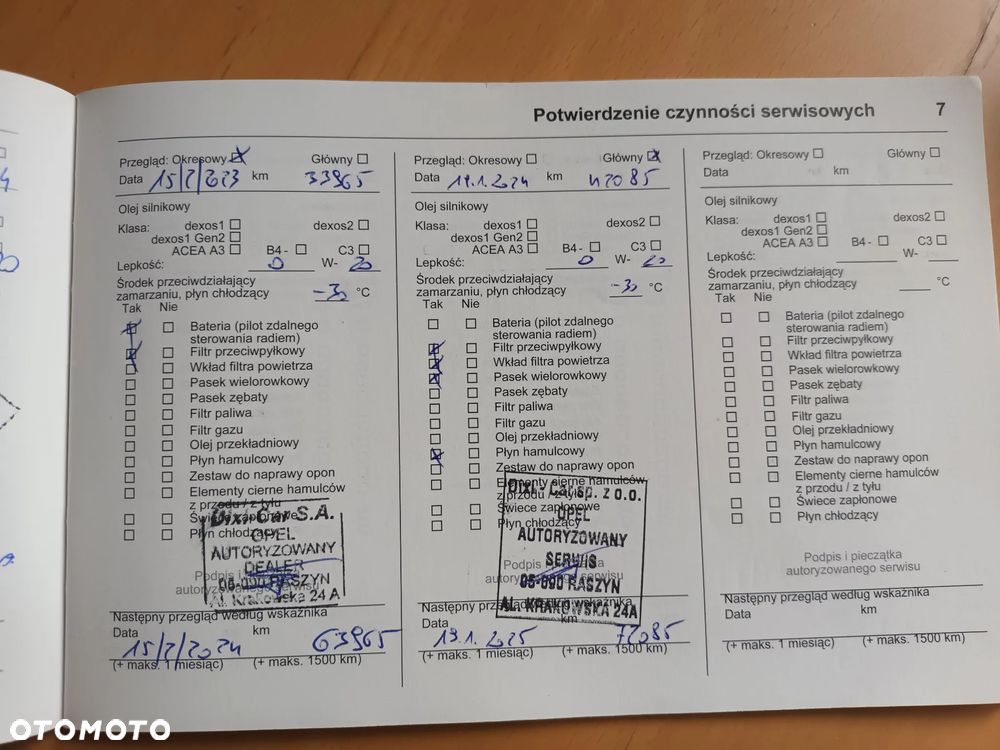 Potwierdzenie czynności serwisowych 7
Przegląd: Okresowy Główny
Data 15/2/2023 km 33965
Olej silnikowy
Klasa: dexos1 dexos2
dexos1 Gen2
ACEA A3 B4 - C3
Lepkość: 0 W- 20
Środek przeciwdziałający
zamarzaniu, płyn chłodzący -30 °C
Tak Nie
Bateria (pilot zdalnego
sterowania radiem)
Filtr przeciwpyłkowy
Wkład filtra powietrza
Pasek wielorowkowy
Pasek zębaty
Filtr paliwa
Filtr gazu
Olej przekładniowy
Płyn hamulcowy
Zestaw do naprawy opon
Elementy cierne hamulców
z przodu / z tyłu
Świece zapłonowe
Płyn chłodzący
Dixi-Car S.A.
OPEL
AUTORYZOWANY
DEALER
05-090 RASZYN
Al. Krakowska 24 A
Podpis i
autoryzowanego serwisu
Następny przegląd według wskaźnika
Data km
15/2/2024 63965
(+ maks. 1 miesiąc) (+ maks. 1500 km)
Przegląd: Okresowy Główny
Data 19.1.2024 km 42085
Olej silnikowy
Klasa: dexos1 dexos2
dexos1 Gen2
ACEA A3 B4 - C3
Lepkość: 0 W- 20
Środek przeciwdziałający
zamarzaniu, płyn chłodzący -30 °C
Tak Nie
Bateria (pilot zdalnego
sterowania radiem)
Filtr przeciwpyłkowy
Wkład filtra powietrza
Pasek wielorowkowy
Pasek zębaty
Filtr paliwa
Filtr gazu
Olej przekładniowy
Płyn hamulcowy
Zestaw do naprawy opon
Elementy cierne hamulców
z przodu / z tyłu
Świece zapłonowe
Płyn chłodzący
Dixi-Car sp. z o.o.
OPEL
AUTORYZOWANY
SERWIS
05-090 RASZYN
AL. KRAKOWSKA 24A
Podpis i
autoryzowanego serwisu
Następny przegląd według wskaźnika
Data km
19.1.2025 72085
(+ maks. 1 miesiąc) (+ maks. 1500 km)
Przegląd: Okresowy Główny
Data km
Olej silnikowy
Klasa: dexos1 dexos2
dexos1 Gen2
ACEA A3 B4 - C3
Lepkość: W-
Środek przeciwdziałający
zamarzaniu, płyn chłodzący °C
Tak Nie
Bateria (pilot zdalnego
sterowania radiem)
Filtr przeciwpyłkowy
Wkład filtra powietrza
Pasek wielorowkowy
Pasek zębaty
Filtr paliwa
Filtr gazu
Olej przekładniowy
Płyn hamulcowy
Zestaw do naprawy opon
Elementy cierne hamulców
z przodu / z tyłu
Świece zapłonowe
Płyn chłodzący
Podpis i pieczątka
autoryzowanego serwisu
Następny przegląd według wskaźnika
Data km
(+ maks. 1 miesiąc) (+ maks. 1500 km)
OTOMOTO